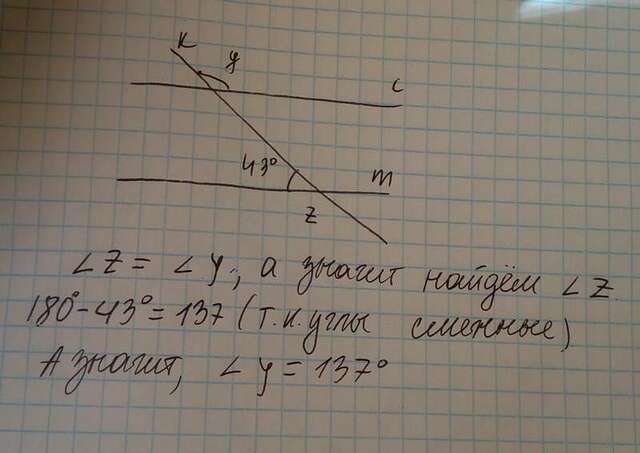 к
y
c
43°
m
z
∠z = ∠y, а значит найдём ∠z.
180°-43°=137 (т.к. углы смежные)
А значит, ∠y = 137°